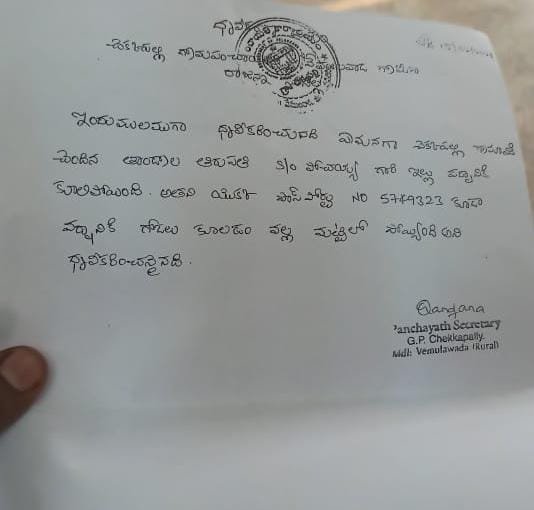 ధృవీక
చెక్కపల్లి గ్రామపంచా
ఇందుమూలముగా ధృవీకరించునది ఏమనగా చెక్కపల్లి గ్రామానికి
చెందిన తిరుపతి S/o పోచయ్య గారి ఇల్లు వర్షానికి
కూలిపోయింది. అతని యొక్క పాస్ పోర్టు NO 5749323 కూడా
వర్షానికి గోడలు కూలడం వల్ల మట్టిలో పోయ్యింది అని
ధృవీకరించనైనది.
Panchayath Secretary
G.P. Chekkapally.
Mdl: Vemulawada (Rural)